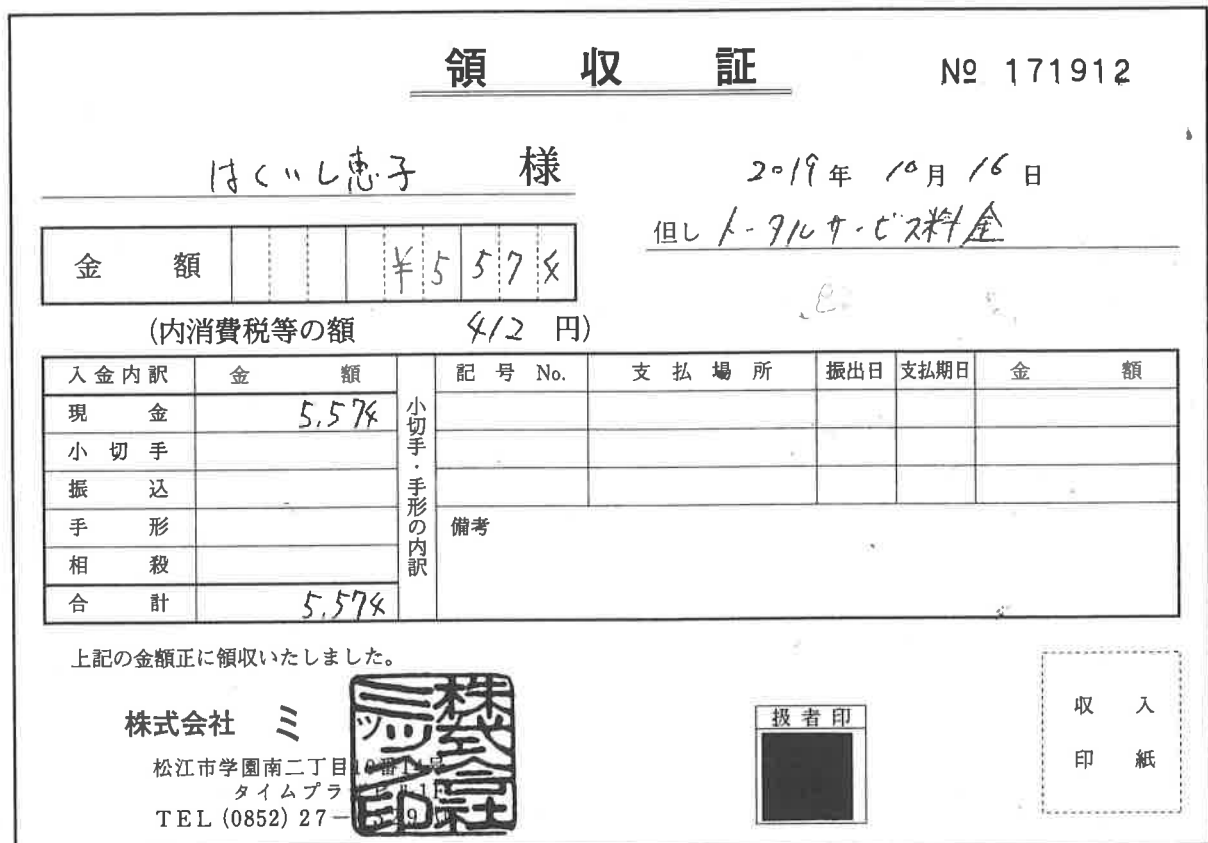 領収証
№ 171912
はくいし恵子 様
2019年 10月 16日
但し トータルサービス料金
金額 ¥5574
(内消費税等の額 412 円)
入金内訳 金額
現金 5,574
小切手
振込
手形
相殺
合計 5,574
小切手・手形の内訳
記号 No. 支払場所 振出日 支払期日 金額
備考
上記の金額正に領収いたしました。
株式会社 ミ
松江市学園南二丁目
タイムプラ
TEL (0852) 27-
扱者印
収入
印紙